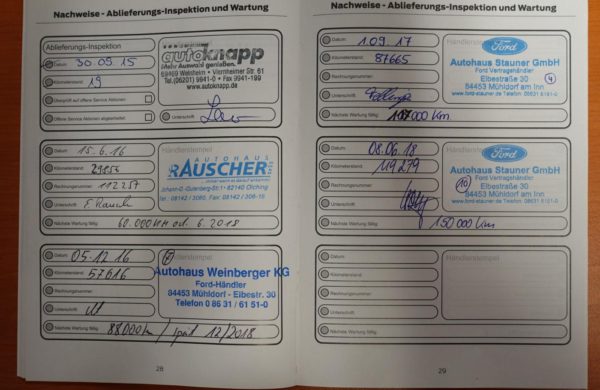 Nachweise - Ablieferungs-Inspektion und Wartung
Ablieferungs-Inspektion
Datum: 30.09.15
Kilometerstand: 19
Überprüft auf offene Service Aktionen
Offene Service Aktionen abgearbeitet
Unterschrift
autoknapp
Mehr Auswahl genießen.
69469 Weinheim - Viernheimer Str. 61
Tel.(06201) 9941-0 • Fax 9941-199
www.autoknapp.de
Händlerstempel
Datum: 15.6.16
Kilometerstand:
Rechnungsnummer: 112257
Unterschrift
Nächste Wartung fällig: 60.000 KM od. 6.2018
AUTOHAUS
RÄUSCHER
Johann-G.-Gutenberg-Str.1 • 82140 Olching
Händlerstempel
Datum: 05.12.16
Kilometerstand: 57616
Rechnungsnummer:
Unterschrift
Nächste Wartung fällig: 88000km / spät 12/2018
Autohaus Weinberger KG
Ford-Händler
84453 Mühldorf - Eibestr. 30
Telefon 0 86 31 / 61 51-0
28
Nachweise - Ablieferungs-Inspektion und Wartung
Händlerstempel
Datum: 1.09.17
Kilometerstand: 87665
Rechnungsnummer:
Unterschrift
Nächste Wartung fällig: 000 Km
Ford
Autohaus Stauner GmbH
Ford Vertragshändler
Eibestraße 30
84453 Mühldorf am Inn
4
Händlerstempel
Datum: 08.06.18
Kilometerstand: 119279
Rechnungsnummer:
Unterschrift
Nächste Wartung fällig: 150000 Km
Ford
Autohaus Stauner GmbH
Ford Vertragshändler
Eibestraße 30
84453 Mühldorf am Inn
10
Händlerstempel
Datum:
Kilometerstand:
Rechnungsnummer:
Unterschrift
Nächste Wartung fällig:
29